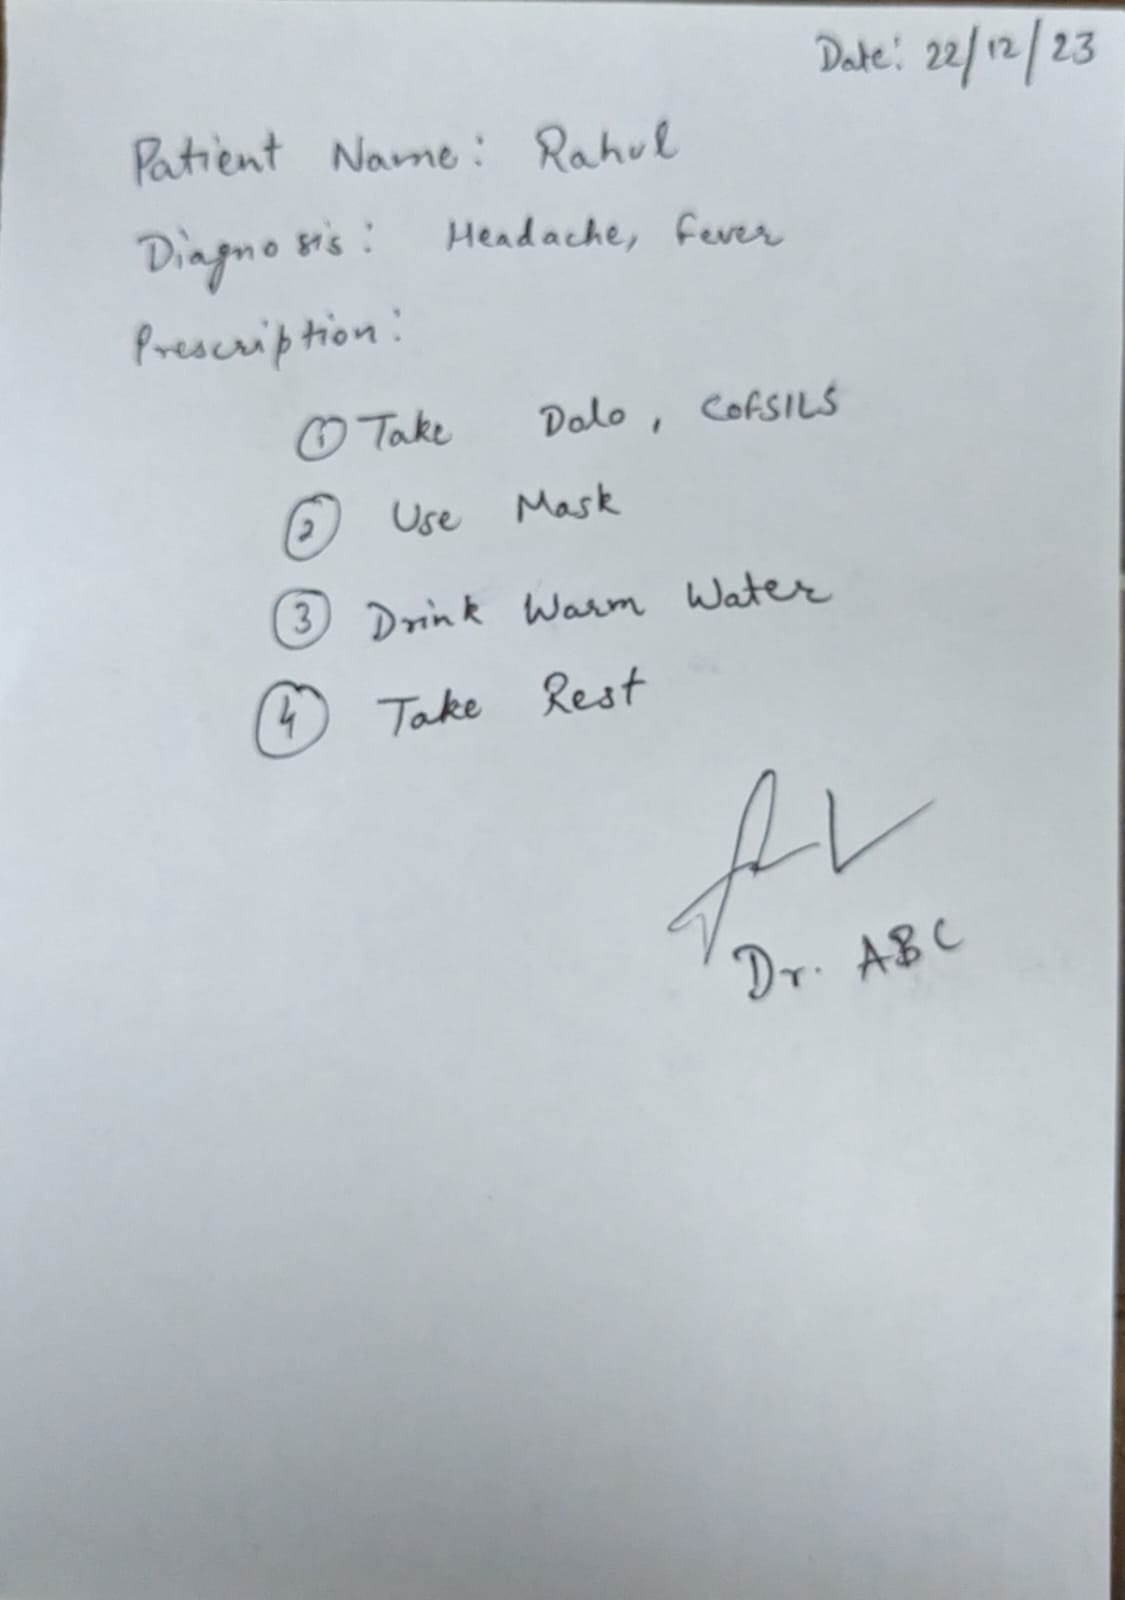 Date: 22/12/23
Patient Name: Rahul
Diagnosis: Headache, Fever
Prescription:
① Take Dolo, COFSILS
② Use Mask
③ Drink Warm Water
④ Take Rest
Dr. ABC